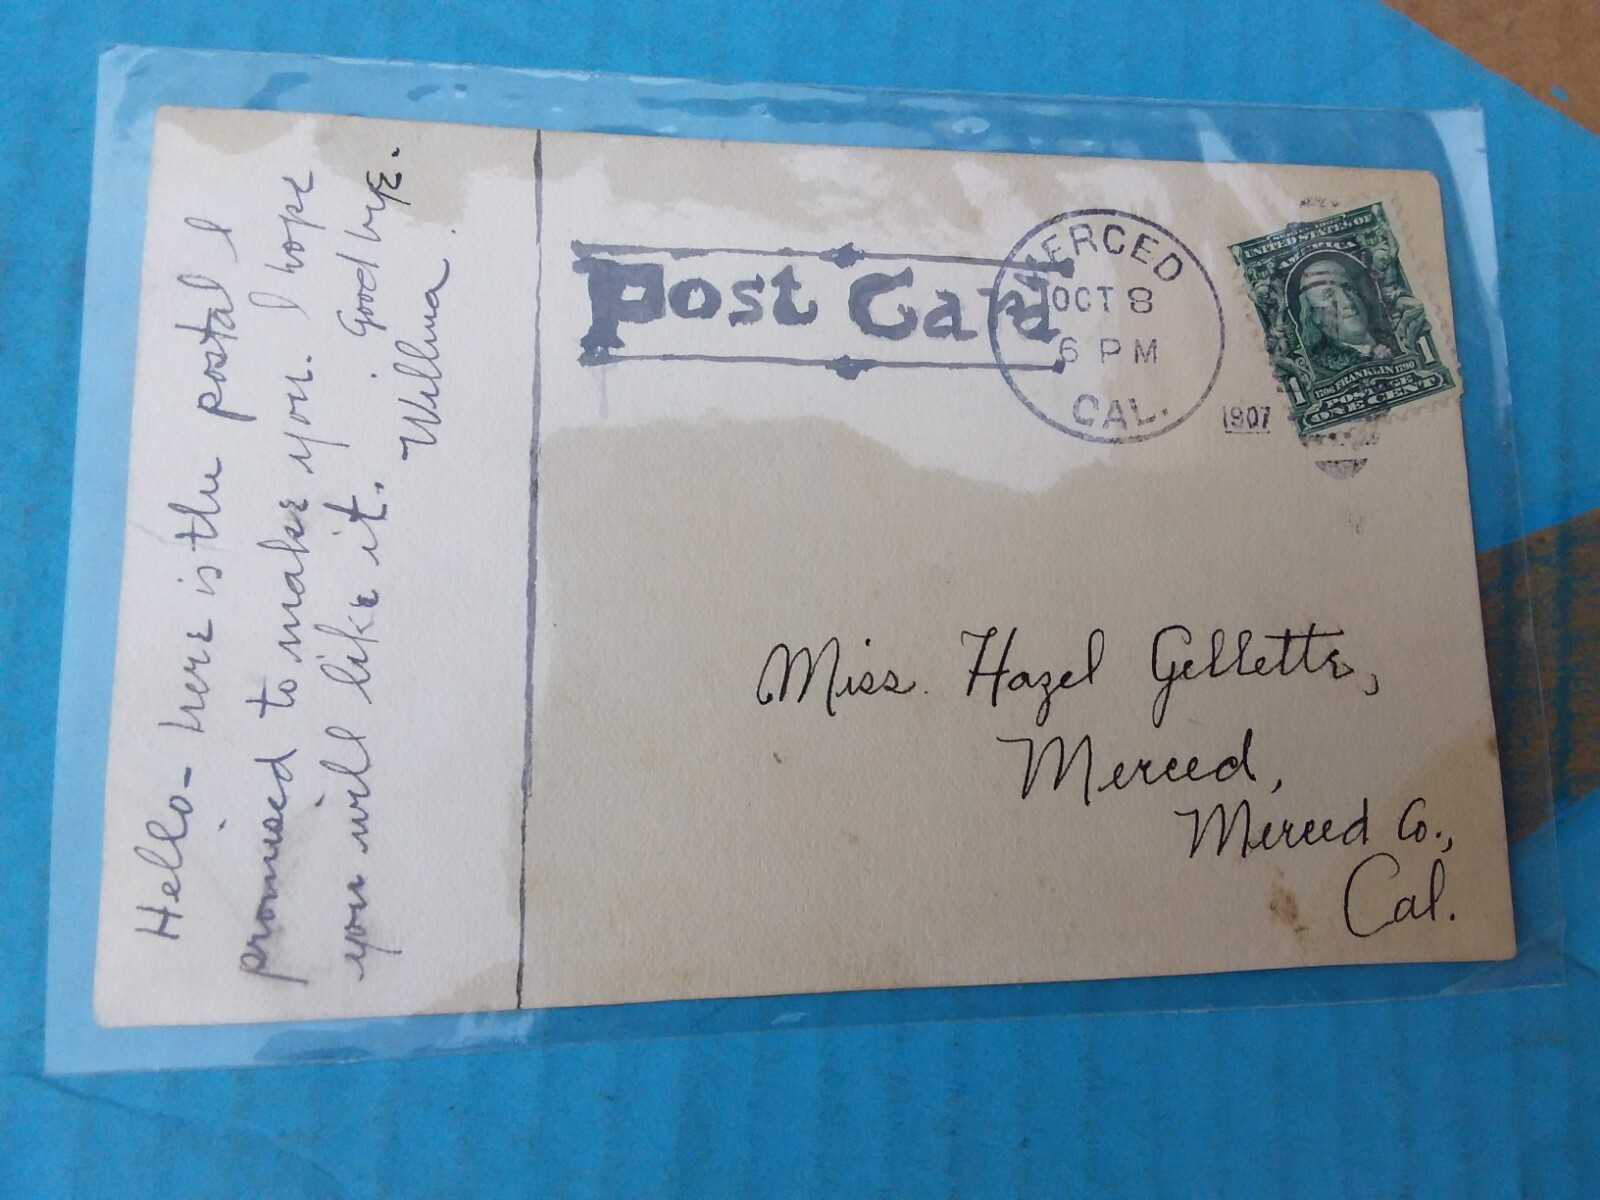 Hello- here is the postal I
promised to make you. I hope
you will like it. Good bye.
Wilma
Post Card
MERCED
OCT 8
6 PM
CAL.
1907
SERIES 1902
UNITED STATES OF
AMERICA
1 1
1706 FRANKLIN 1790
POSTAGE
ONE CENT
Miss. Hazel Gellette,
Merced,
Merced Co.,
Cal.